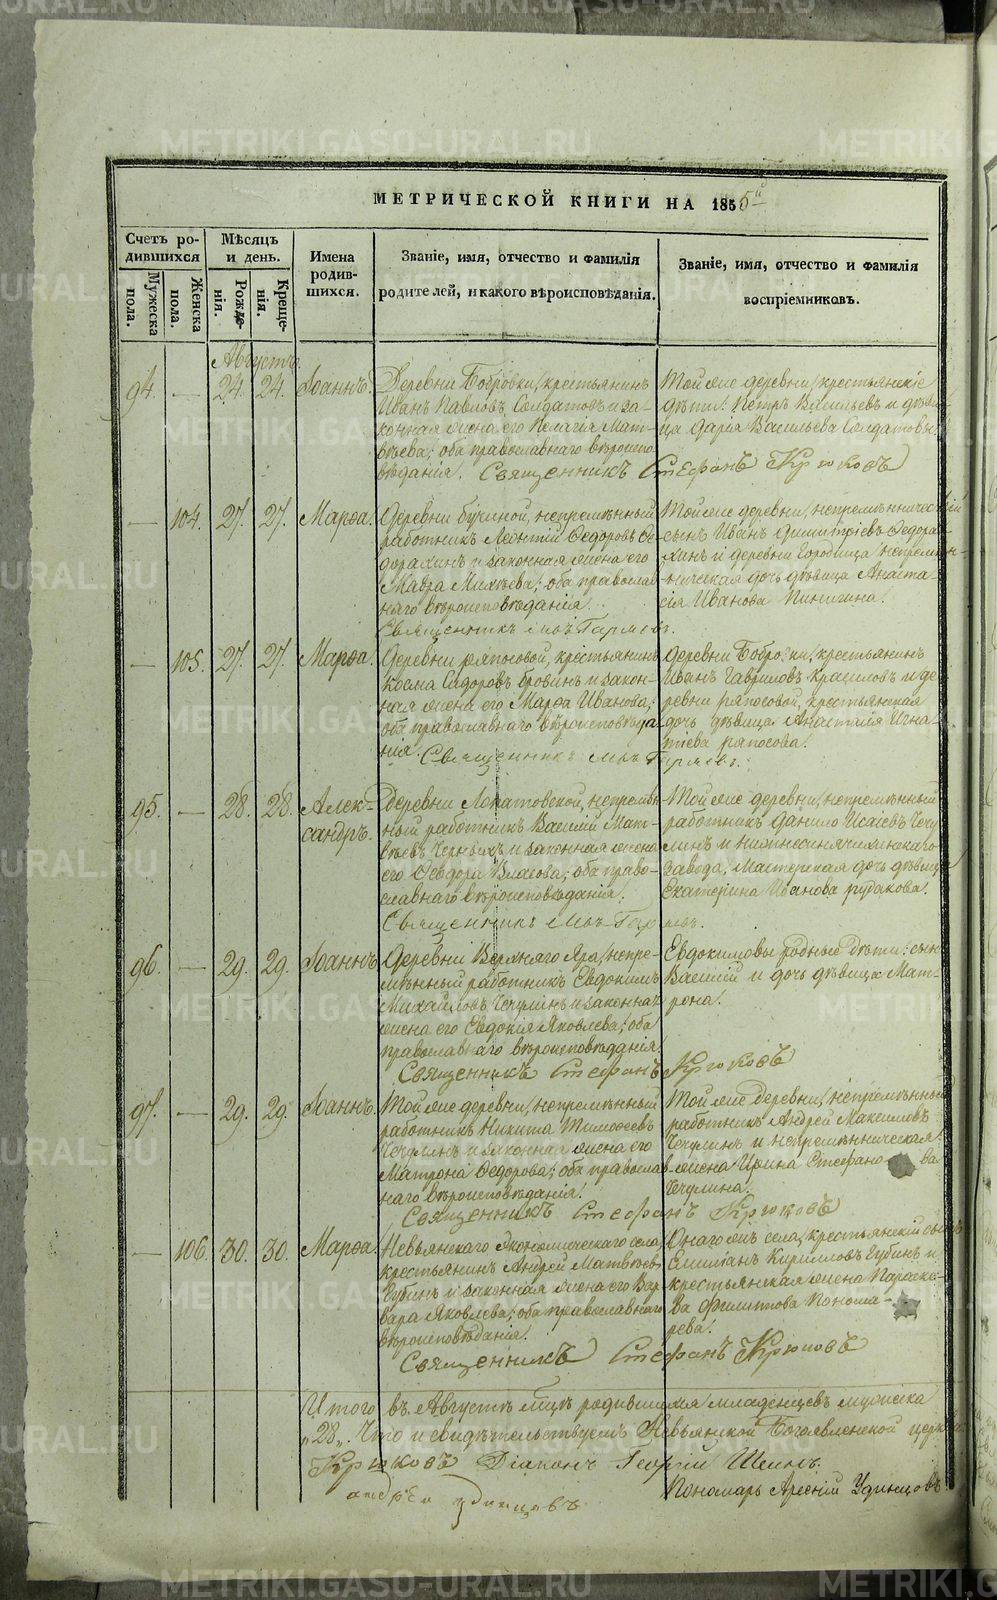 МЕТРИЧЕСКОЙ КНИГИ НА 1855й
Счетъ ро-
дившихся
Мѣсяцъ
и день.
Имена
родив-
шихся.
Званіе, имя, отчество и фамилія
родителей, и какого вѣроисповѣданія.
Званіе, имя, отчество и фамилія
воспріемниковъ.
Мужеска
пола.
Женска
пола.
Рожде-
нія.
Креще-
нія.
Августъ
94. — 24. 24. Іоаннъ.
Деревни Бобровки, крестьянинъ
Иванъ Павловъ Солдатовъ и за-
конная жена его Пелагія Мат-
вѣева; оба православнаго вѣроиспо-
вѣданія.
Той же деревни, крестьянскіе
дѣти: Петръ Васильевъ и дѣви-
ца Дарія Васильева Солдатовы.
Священникъ Стефанъ Крюковъ
— 104. 27. 27. Марѳа.
Деревни Бучиной, непремѣнный
работникъ Леонтій Ѳедоровъ Ѳе-
дорахинъ и законная жена его
Мавра Михѣева; оба православ-
наго вѣроисповѣданія.
Той же деревни, непремѣнническій
сынъ Иванъ Димитріевъ Ѳедора-
хинъ и деревни Городища непремѣн-
ническая дочь дѣвица Анаста-
сія Иванова Пинигина.
Священникъ
— 105. 27. 27. Марѳа.
Деревни Ряпосовой, крестьянинъ
Косма Сидоровъ Бровинъ и закон-
ная жена его Марѳа Иванова;
оба православнаго вѣроисповѣда-
нія.
Деревни Бобровки, крестьянинъ
Иванъ Гавриловъ Красиловъ и де-
ревни Ряпосовой, крестьянская
дочь дѣвица Анастасія Игна-
тіева Ряпосова.
Священникъ
95. — 28. 28. Алек-
сандръ.
Деревни Лопатовской, непремѣн-
ный работникъ Василій Мат-
вѣевъ Черныхъ и законная жена
его Ѳеодора Власова; оба право-
славнаго вѣроисповѣданія.
Той же деревни, непремѣнный
работникъ Данило Исаевъ Чечу-
линъ и Нижнесинячихинскаго
завода, Мастерская дочь дѣвица
Екатерина Иванова Рудакова.
Священникъ
96. — 29. 29. Іоаннъ.
Деревни Верхняго Яра, непре-
мѣнный работникъ Евдокимъ
Михайловъ Чечулинъ и законная
жена его Евдокія Яковлева; оба
православнаго вѣроисповѣданія.
Евдокимовы родные дѣти: сынъ
Василій и дочь дѣвица Мат-
рона.
Священникъ Стефанъ Крюковъ
97. — 29. 29. Іоаннъ.
Той же деревни, непремѣнный
работникъ Никита Тимоѳеевъ
Чечулинъ и законная жена его
Матрона Ѳедорова; оба православ-
наго вѣроисповѣданія.
Той же деревни, непремѣнный
работникъ Андрей Максимовъ
Чечулинъ и непремѣнническая
жена Ирина Стефанова
Чечулина.
Священникъ Стефанъ Крюковъ
— 106. 30. 30. Марѳа.
Невьянскаго Экономическаго села,
крестьянинъ Андрей Матвѣевъ
Губинъ и законная жена его Вар-
вара Яковлева; оба православнаго
вѣроисповѣданія.
Онаго жъ села, крестьянскій сынъ
Емиліанъ Кирилловъ Губинъ и
крестьянская жена Параске-
ва Филиппова Понома-
рева.
Священникъ Стефанъ Крюковъ
Итого въ Августѣ мцѣ родившихся младенцевъ мужеска
„28„. Что и свидѣтельствуемъ Невьянской Богоявленской церкви
Крюковъ Діаконъ Георгій Шеинъ
Пономарь Арсеній Удинцовъ
Андрей Удинцовъ
METRIKI.GASO-URAL.RU